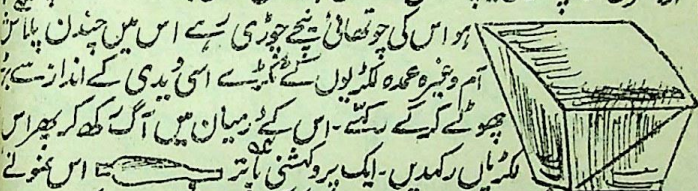 ہو اس کی چوتھائی نیچے چوڑی رہے اس میں چندن پلاش
آم وغیرہ عمدہ لکڑیوں کے ٹکڑے اسی ویدی کے انداز سے
چھوٹے کرکے رکھے۔ اس کے درمیان میں آگ رکھ کر پھر اس
لکڑیاں رکھدیں۔ ایک پروکشنی پاتر اس نمونے